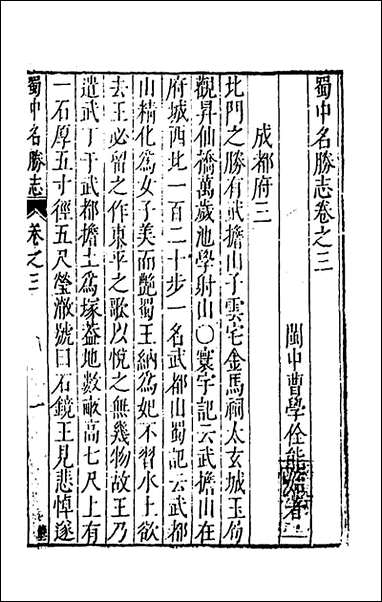 蜀中名勝志卷之三
閩中曹學佺能始著
成都府三
北門之勝有武擔山子雲宅金馬祠太玄城玉局
觀昇仙橋萬歲池學射山〇寰宇記云武擔山在
府城西北一百二十步一名武都山蜀記云武都
山精化為女子美而艷蜀王納為妃不習水土欲
去王必留之作東平之歌以悅之無幾物故王乃
遣武丁于武都擔土為塚葢地數畝高七尺上有
一石厚五寸徑五尺瑩澈號曰石鏡王見悲悼遂
蜀中名勝志 卷之三 一